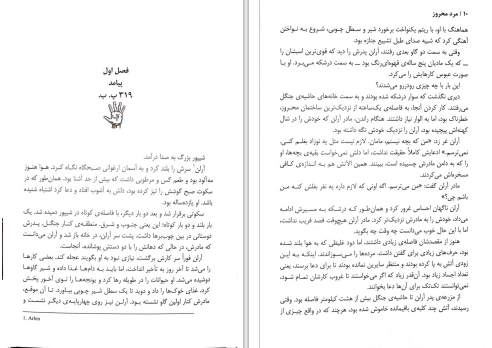 ۱۰ / مرد محروز
هماهنگ با او، با ریتم یکنواخت برخورد شیر و سطل چوبی، شروع به نواختن
آهنگی کرد که شبیه صدای طبل تشییع جنازه بود.
وقتی به سمت دو گاو بعدی رفتند، آرلن پدرش را دید که قوی‌ترین اسبشان را
ــ که یک مادیان پنج ساله‌ی قهوه‌ای‌رنگ بود ــ به سمت درشکه می‌برد. او با
صورت عبوس کارهایش را می‌کرد.
این بار با چه چیزی رودررو می‌شدند؟
دیری نگذشت که سوار درشکه شده بودند و به سمت خانه‌های حاشیه‌ی جنگل
می‌رفتند. کار کردن آنجا، به فاصله‌ی یک‌ساعته از نزدیک‌ترین ساختمان محروز،
خطرناک بود، اما به الوار نیاز داشتند. هنگام راندن، مادر آرلن که خودش را در شال
کهنه‌اش پیچیده بود، آرلن را نزدیک خودش نگه داشته بود.
آرلن غر زد: «من که بچه نیستم، مامان. لازم نیست مثل یه نوزاد بغلم کنی.
نمی‌ترسم.» ادعایش کاملاً حقیقت نداشت، اما دلش نمی‌خواست بقیه‌ی بچه‌ها، او
را که به دامن مادرش چسبیده است، ببینند. همین الآنش هم به اندازه‌ی کافی
مسخره‌اش می‌کردند.
مادر آرلن گفت: «من می‌ترسم. اگه اونی که لازم داره یه نفر بغلش کنه من
باشم چی؟»
آرلن ناگهان احساس غرور کرد و همان‌طور که درشکه به مسیرش ادامه
می‌داد، خودش را به مادرش نزدیک‌تر کرد. مادر آرلن هیچ‌وقت قصد فریب نداشت،
اما با این حال خوب می‌دانست چه وقت چه بگوید.
هنوز از مقصدشان فاصله‌ی زیادی داشتند، اما دود غلیظی که به هوا بلند شده
بود، حرف‌های زیادی برای گفتن داشت. مرده‌ها را می‌سوزاندند. اینکه به این
زودی آتش به پا کرده بودند و منتظر سایرین نمانده بودند تا برای دعا برسند، یعنی
تعداد اجساد زیاد بود. آن‌قدر زیاد که اگر می‌خواستند تا غروب کارشان تمام شود،
نمی‌توانستند تک‌تک برای آن‌ها دعا کنند.
از مزرعه‌ی پدر آرلن تا حاشیه‌ی جنگل بیش از هشت کیلومتر فاصله بود. وقتی
رسیدند، آتش چند کلبه‌ی باقیمانده خاموش شده بود، هرچند که در واقع چیزی از
فصل اول
پیامد
۳۱۹ پ. ب.
شیپور بزرگ به صدا درآمد.
آرلن¹ سرش را بلند کرد و به آسمان ارغوانی صبحگاه نگاه کرد. هوا هنوز
مه‌آلود بود و طعم گس و مرطوبی داشت که بیش از حد آشنا بود. همان‌طور که در
سکوت صبح گوشش را تیز کرده بود، دلش به آشوب افتاد و دعا کرد اشتباه شنیده
باشد. او یازده‌ساله بود.
سکوتی برقرار شد و بعد دو بار دیگر، با فاصله‌ی کوتاه در شیپور دمیده شد. یک
بار بلند و دو بار کوتاه؛ این یعنی جنوب و شرق، منطقه‌ی کنار جنگل. پدرش
دوستانی در بین چوب‌برها داشت. پشت سر آرلن، در خانه باز شد و آرلن می‌دانست
که مادرش، در حالی که دهانش را با دو دستش پوشانده، آنجاست.
آرلن فوراً سر کارش برگشت. نیازی نبود به او بگویند عجله کند. بعضی کارها
را می‌شد تا آخر روز به تأخیر انداخت، اما باید به دام‌ها غذا داده و شیر گاوها
دوشیده می‌شد. او حیوانات را در طویله رها کرد و یونجه‌ها را توی آخور پخش
کرد، غذای خوک‌ها را داد و دوید تا یک سطل شیر چوبی بیاورد. تا آن موقع،
مادرش کنار اولین گاو نشسته بود. آرلن نیز روی چهارپایه‌ی دیگری نشست و
1. Arlen